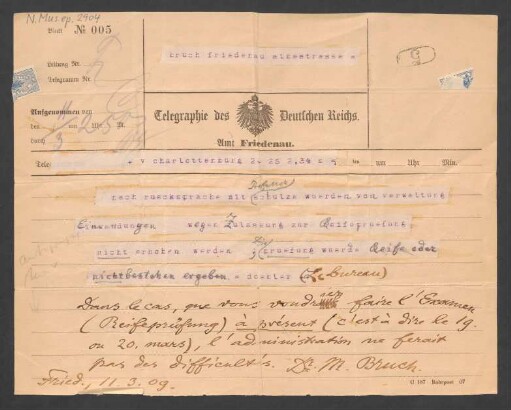 N. Mus. ep. 2904
Blatt № 005
bruch friedenau albestrasse 3
Leitung Nr.
Telegramm Nr.
Aufgenommen von
den um Uhr M.
durch
Telegraphie des Deutschen Reichs.
Amt Friedenau.
Tel + v charlottenburg um Uhr Min.
nach ruecksprache mit schulze wuerden von verwaltung
Einwendungen wegen Zulassung zur Reifepruefung
nicht erhoben werden pruefung wuerde Reife oder
nichtbestehen ergeben = (Le bureau)
Dans le cas, que vous voudriez faire l'Examen
(Reifeprüfung) à présent (c'est à dire le 19.
ou 20. mars), l'administration ne ferait
pas des difficultés. Dr. M. Bruch.
Fried., 11.3.09.
C 187 Rohrpost 07